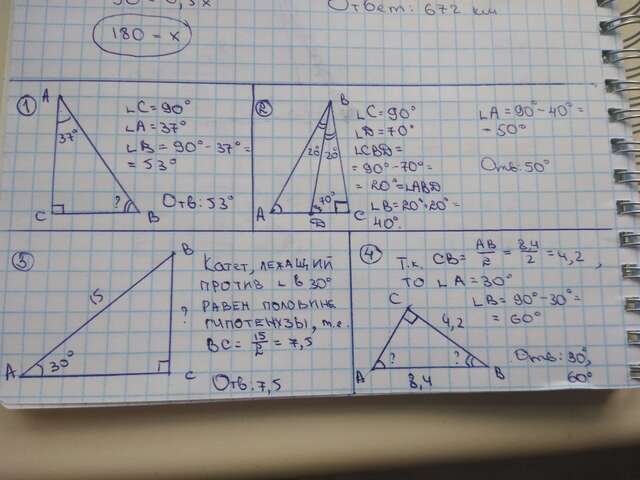 90 - 0,5x
Ответ: 672 км
180 - x
1
A
37°
C
?
B
∠C=90°
∠A=37°
∠B=90°-37°=
=53°
Отв: 53°
2
B
20°
20°
70°
A
D
C
∠C=90°
∠D=70°
∠CBD=
=90°-70°=
=20°=∠ABD
∠B=20°+20°=
40°.
∠A=90°-40°=
-50°
Отв: 50°
3
B
15
?
30°
A
C
Катет, лежащий
против ∠ В 30°
равен половине
гипотенузы, т.е.
BC=15/2=7,5
Отв: 7,5
4
т.к. CB=AB/2=8,4/2=4,2,
то ∠A=30°
∠B=90°-30°=
=60°
C
4,2
?
?
A
8,4
B
Отв: 30°,
60°